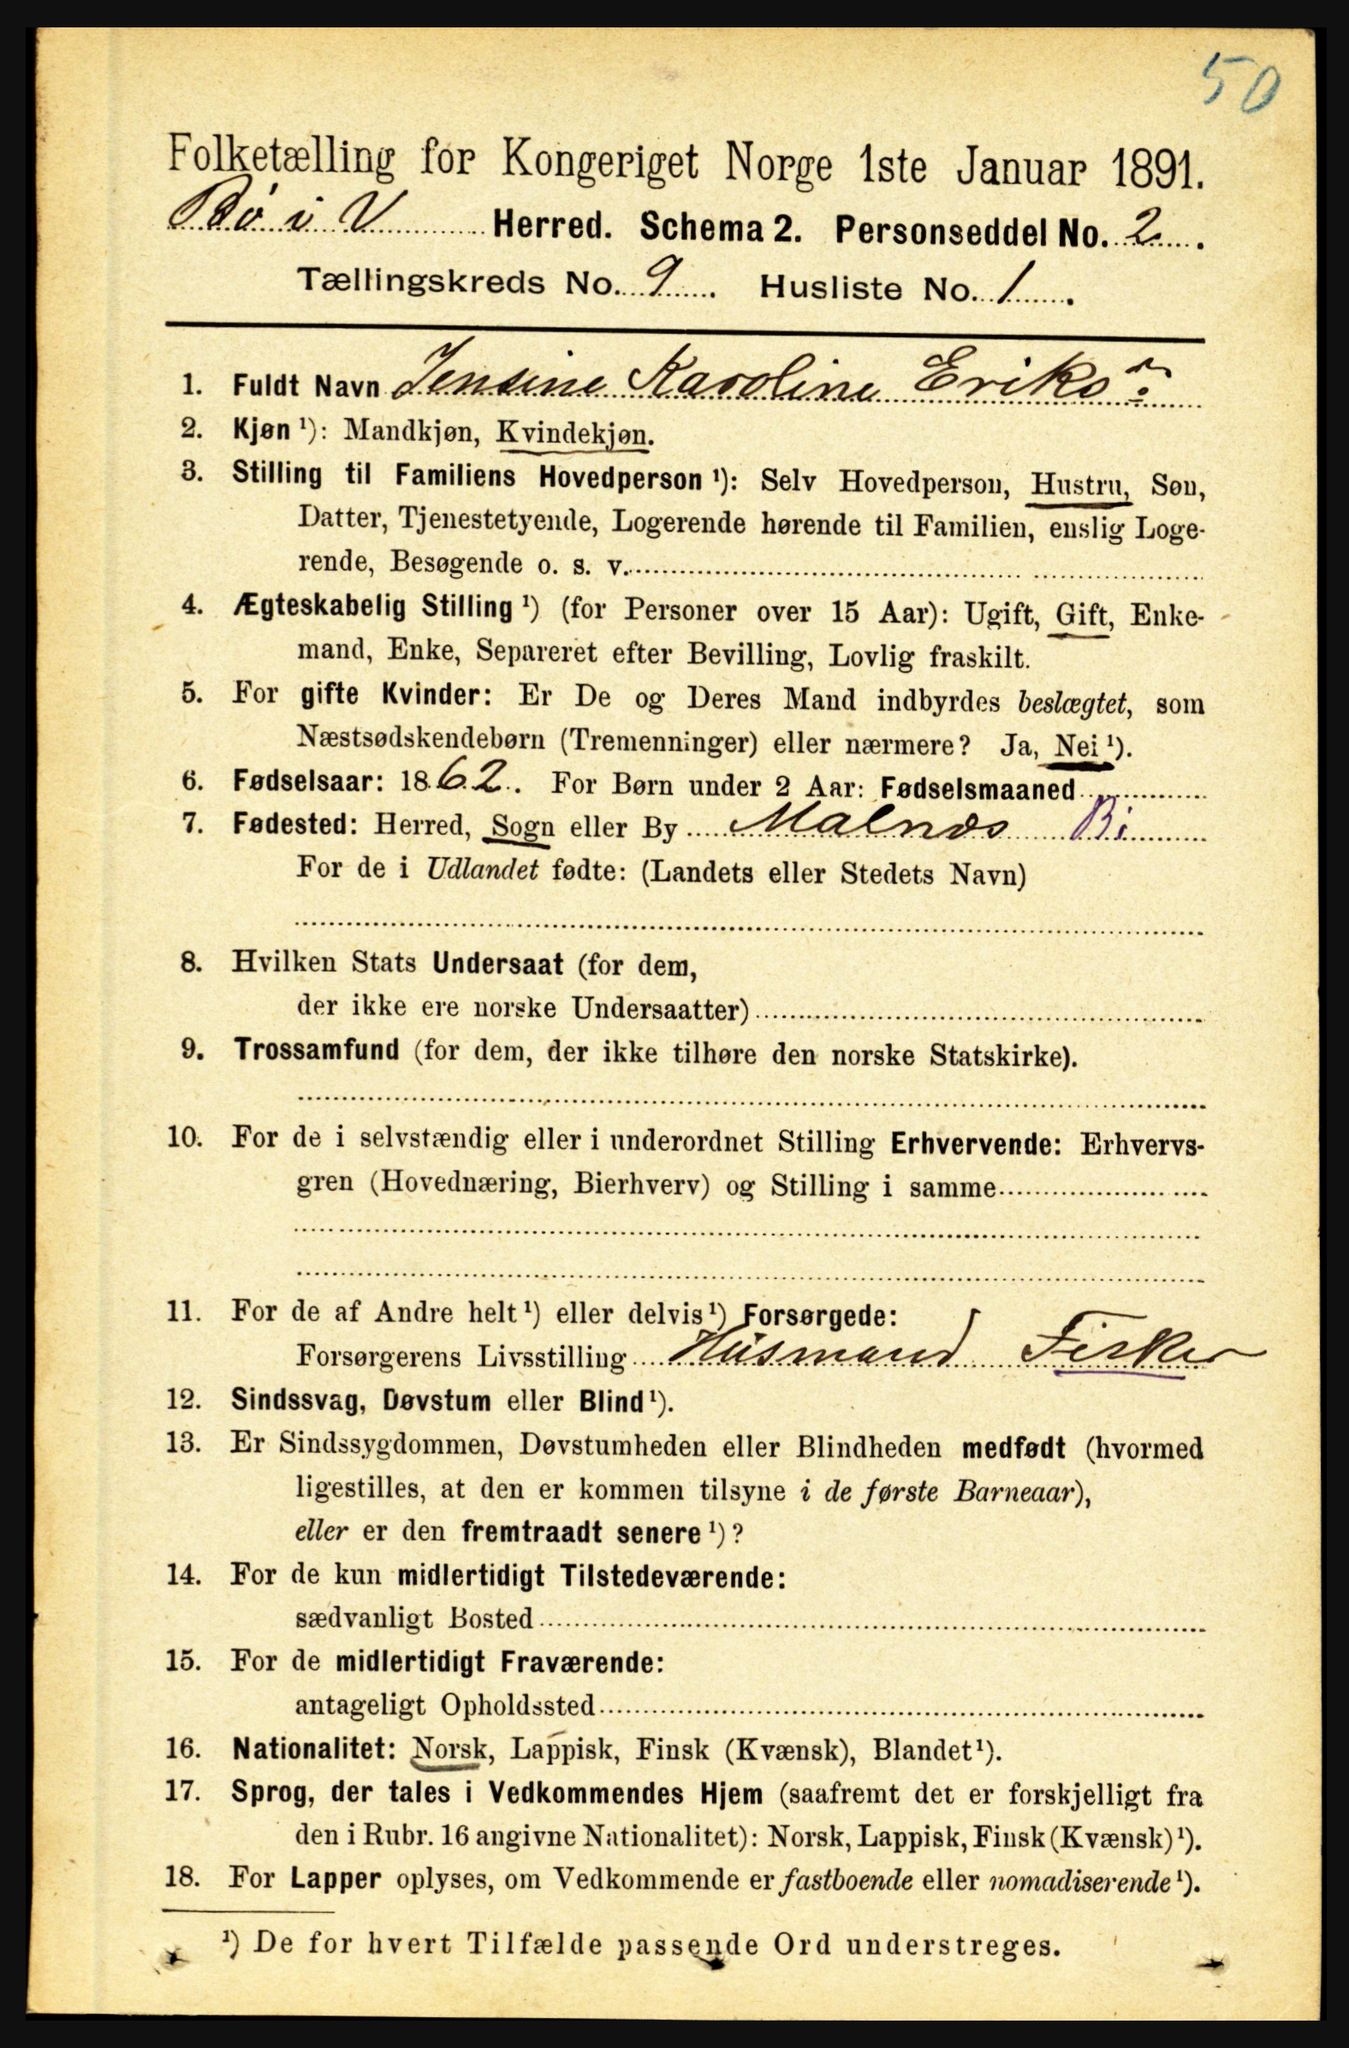 50
Folketælling for Kongeriget Norge 1ste Januar 1891.
Bø i V Herred. Schema 2. Personseddel No. 2.
Tællingskreds No. 9. Husliste No. 1.
1. Fuldt Navn Jensine Karoline Eriksn:
2. Kjøn ¹): Mandkjøn, Kvindekjøn.
3. Stilling til Familiens Hovedperson ¹): Selv Hovedperson, Hustru, Søn,
Datter, Tjenestetyende, Logerende hørende til Familien, enslig Loge-
rende, Besøgende o. s. v.
4. Ægteskabelig Stilling ¹) (for Personer over 15 Aar): Ugift, Gift, Enke-
mand, Enke, Separeret efter Bevilling, Lovlig fraskilt.
5. For gifte Kvinder: Er De og Deres Mand indbyrdes beslægtet, som
Næstsødskendebørn (Tremenninger) eller nærmere? Ja, Nei ¹).
6. Fødselsaar: 1862. For Børn under 2 Aar: Fødselsmaaned
7. Fødested: Herred, Sogn eller By Malnæs Bø
For de i Udlandet fødte: (Landets eller Stedets Navn)
8. Hvilken Stats Undersaat (for dem,
der ikke ere norske Undersaatter)
9. Trossamfund (for dem, der ikke tilhøre den norske Statskirke).
10. For de i selvstændig eller i underordnet Stilling Erhvervende: Erhvervs-
gren (Hovednæring, Bierhverv) og Stilling i samme
11. For de af Andre helt ¹) eller delvis ¹) Forsørgede:
Forsørgerens Livsstilling Husmand Fisker
12. Sindssvag, Døvstum eller Blind ¹).
13. Er Sindssygdommen, Døvstumheden eller Blindheden medfødt (hvormed
ligestilles, at den er kommen tilsyne i de første Barneaar),
eller er den fremtraadt senere ¹)?
14. For de kun midlertidigt Tilstedeværende:
sædvanligt Bosted
15. For de midlertidigt Fraværende:
antageligt Opholdssted
16. Nationalitet: Norsk, Lappisk, Finsk (Kvænsk), Blandet ¹).
17. Sprog, der tales i Vedkommendes Hjem (saafremt det er forskjelligt fra
den i Rubr. 16 angivne Nationalitet): Norsk, Lappisk, Finsk (Kvænsk) ¹).
18. For Lapper oplyses, om Vedkommende er fastboende eller nomadiserende ¹).
¹) De for hvert Tilfælde passende Ord understreges.